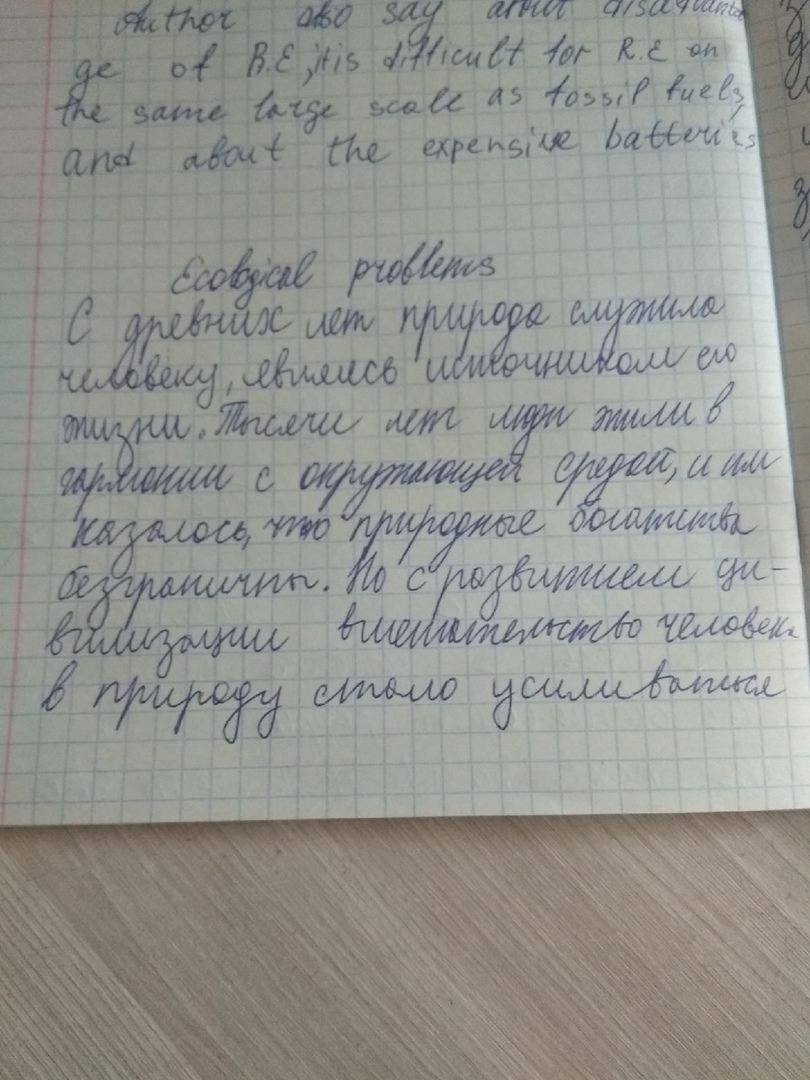 Author also say about disadvanta
ge of R.E, itis difficult for R.E on
the same large scale as fossil fuels,
and about the expensive batteries
Ecological problems
С древних лет природа служила
человеку, являясь источником его
жизни. Тысячи лет люди жили в
гармонии с окружающей средой, и им
казалось, что природные богатства
безграничны. Но с развитием ци-
вилизации вмешательство человека
в природу стало усиливаться